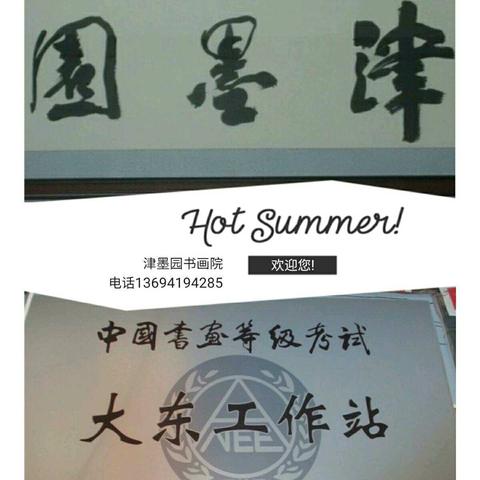 津墨園
Hot Summer!
津墨园书画院
欢迎您!
电话13694194285
中國書画等级考试
大东工作站
NEE